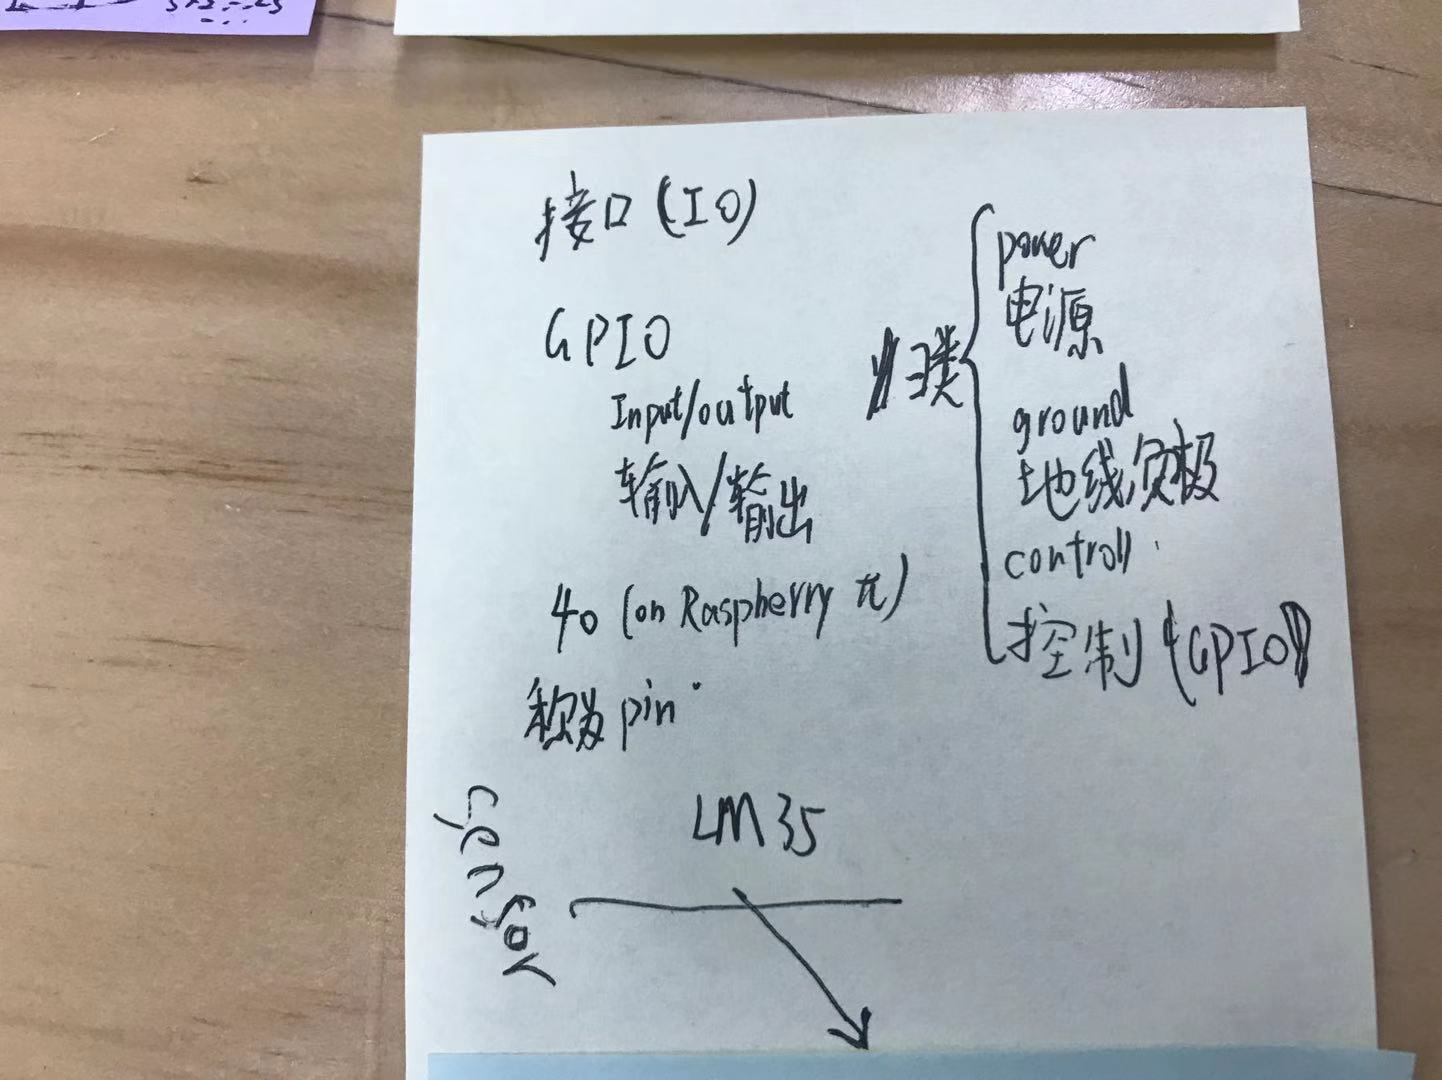 接口(IO)
GPIO
Input/output
输入/输出
40 (on Raspberry π)
称为pin
归类
power
电源
ground
地线,负极
controll
控制(GPIO)
LM35
sensor